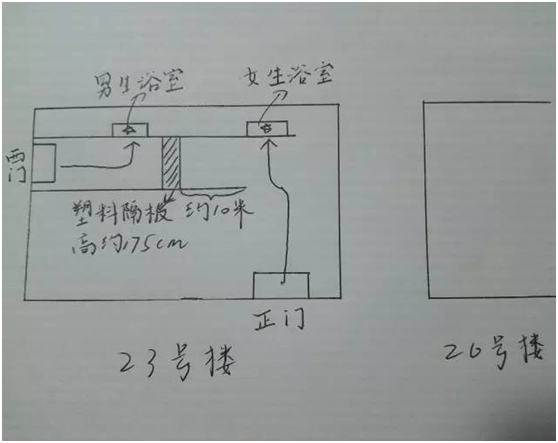 男生浴室
女生浴室
西门
塑料隔板 约10米
高约175cm
正门
23号楼
26号楼